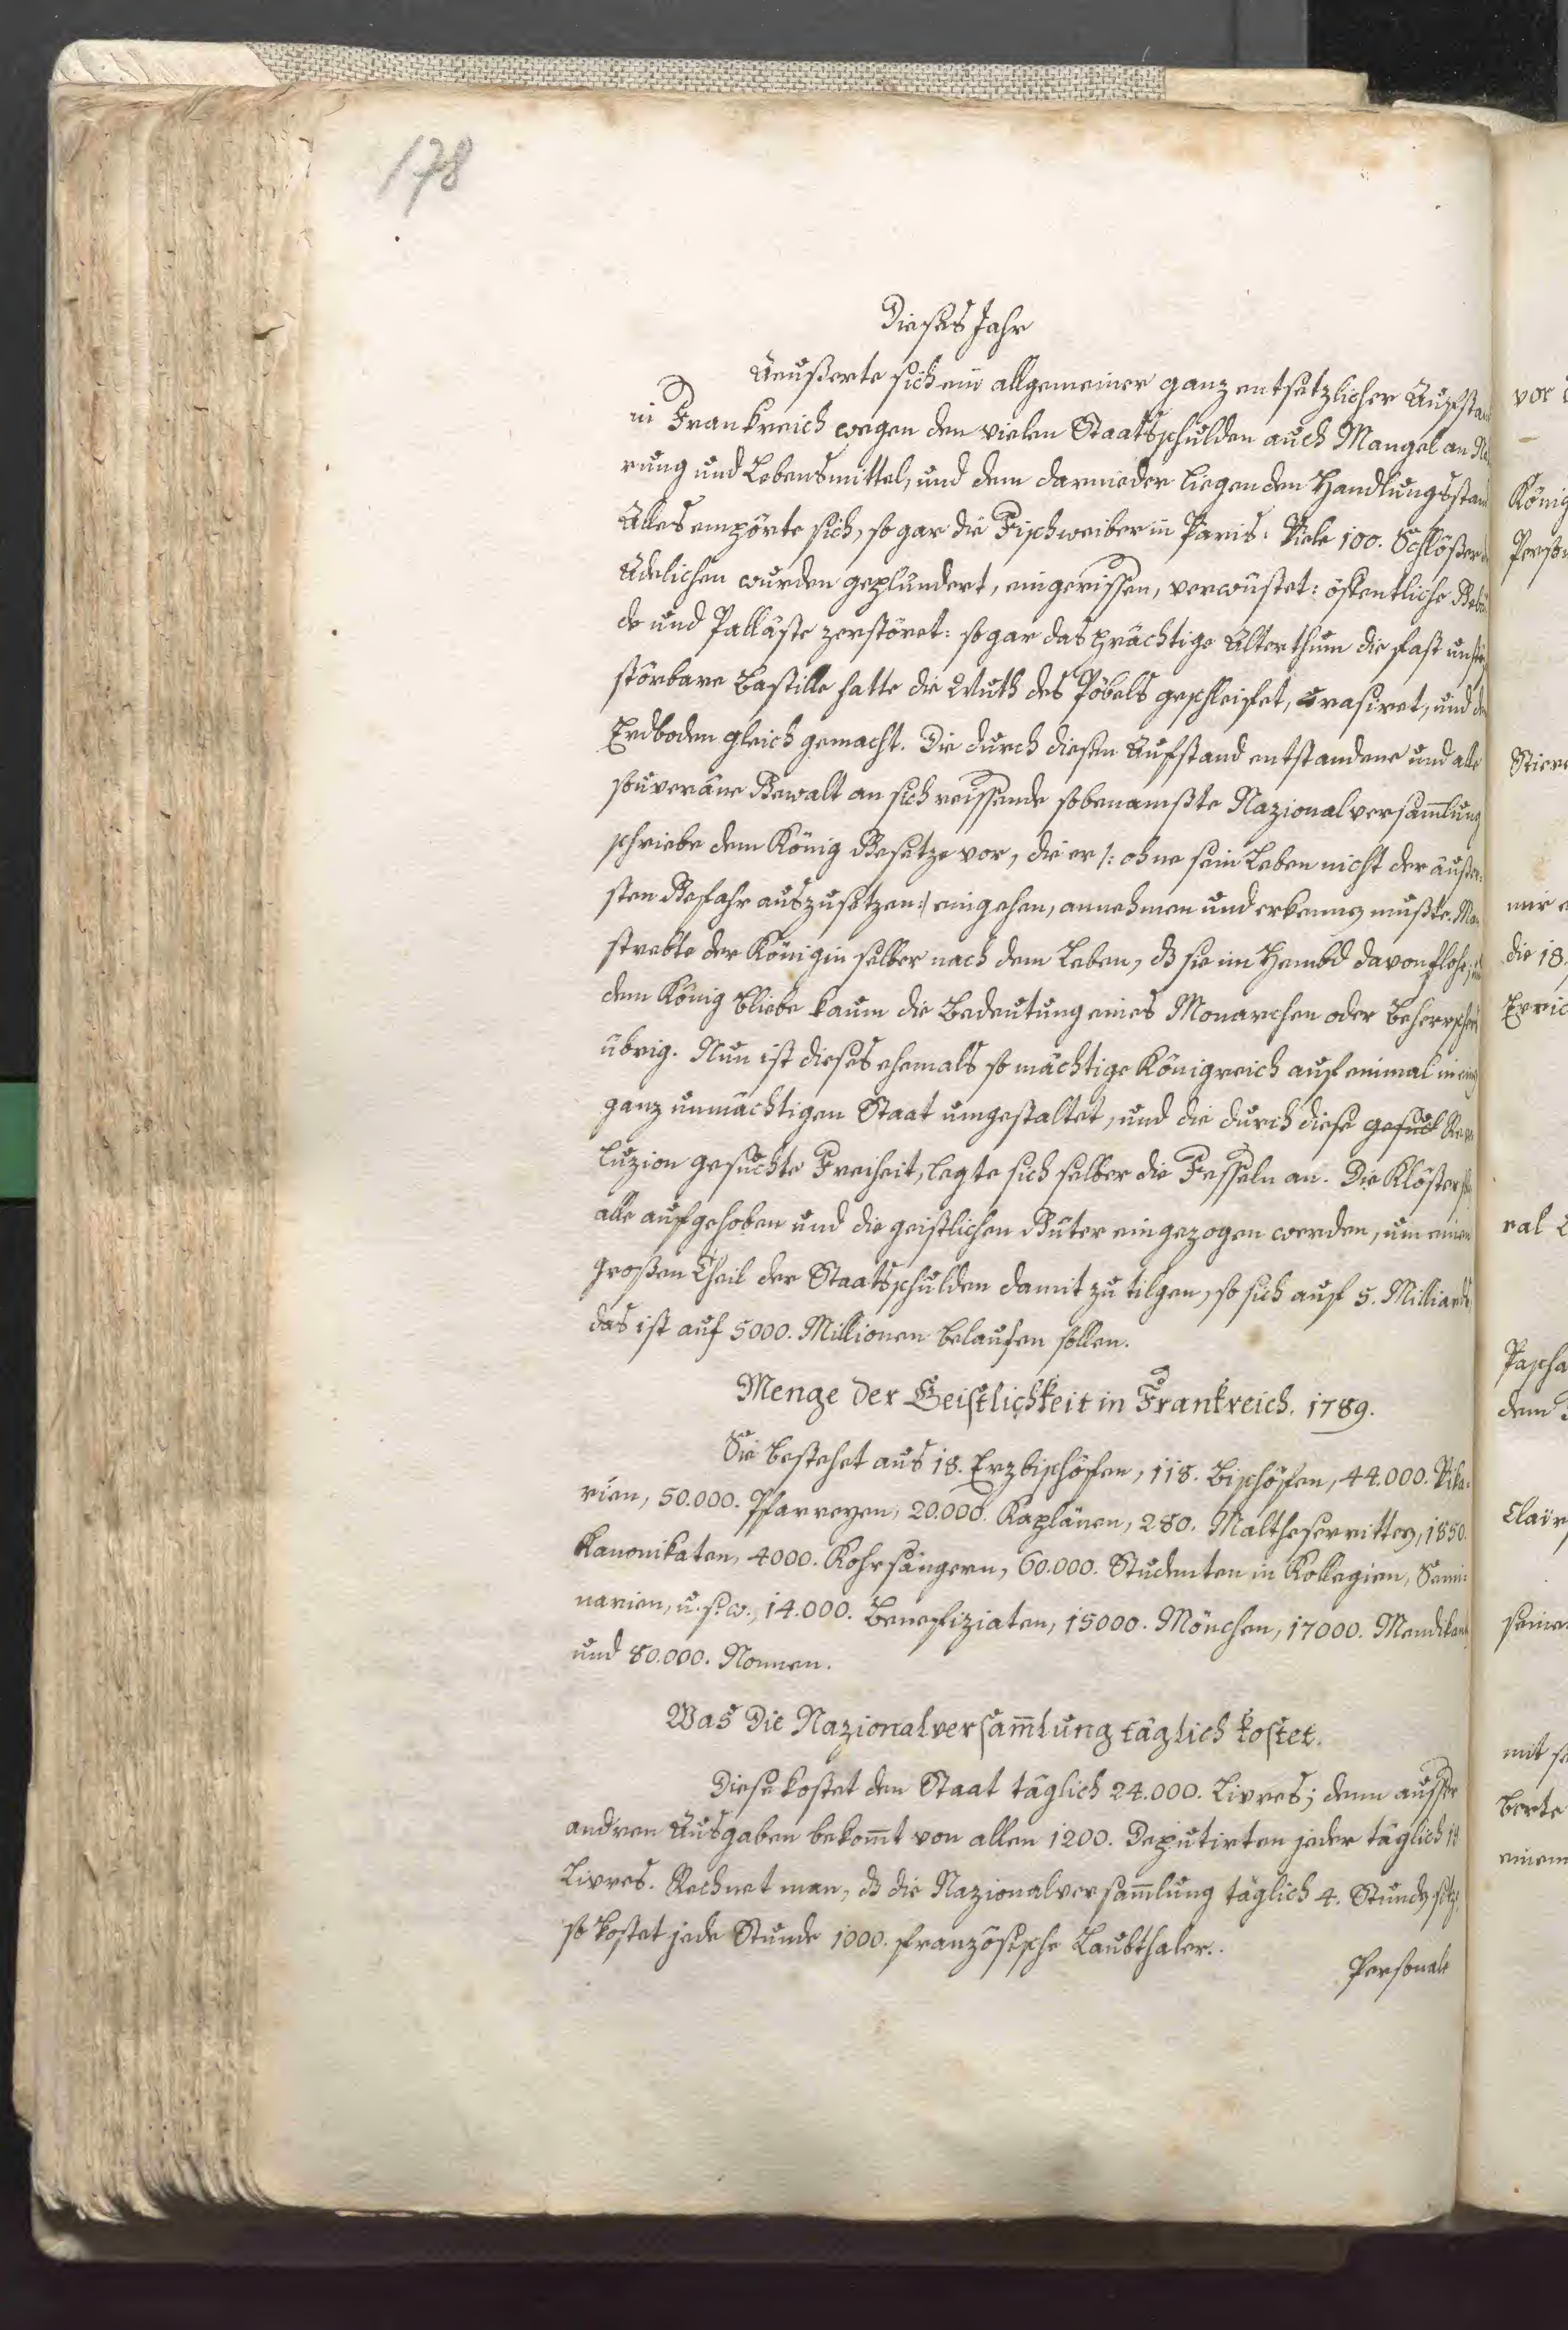 178
Dieses Jahr
Aeußerte sich ein allgemeiner ganz entsetzlicher Aufstan
in Frankreich wegen den vielen Staatsschulden auch Mangel an
rung und Lebensmittel, und dem darnieder liegenden Handlungsstan
Alles empörte sich, so gar die Fischweiber in Paris. Viele 100. Schlößer
Adelichen wurden geplündert, eingerissen, verwüstet: öffentliche Gebäu
de und Palläste zerstöret: so gar das prächtige Alterthum die fast unzer
störbare Bastille hatte die Wuth des Pöbels geschleifet, rasiret, und
Erdboden gleich gemacht. Die durch diesen Aufstand entstandene und alle
souveräne Gewalt an sich reissende sobenamßte Nazionalversam̄lung
schriebe dem König Gesetze vor, die er /: ohne sein Leben nicht der äußer-
sten Gefahr auszusetzen :/ eingehen, annehmen und erkennen mußte. Man
strebte der Königin selber nach dem Leben, dß sie im Hembd davon flohe;
dem König bliebe kaum die Bedeutung eines Monarchen oder Beherrschers
übrig. Nun ist dieses ehemals so mächtige Königreich auf einmal in ein
ganz unmächtigen Staat umgestaltet, und die durch diese gesuch Revo
luzion gesuchte Freiheit, legte sich selber die Fesseln an. Die Klöster
alle aufgehoben und die geistlichen Güter eingezogen werden, um einen
großen Theil der Staatsschulden damit zu tilgen, so sich auf 5. Milliard
das ist auf 5000. Millionen belaufen sollen.
Menge der Geistlichkeit in Frankreich. 1789.
Sie bestehet aus 18. Erzbischöfen, 118. Bischöfen, 44.000. Vika-
rien, 50.000. Pfarreyen, 20.000. Kaplänen, 280. Maltheserrittern, 1850.
Kanonikaten, 4000. Kohrsängern, 60.000. Studenten in Kollegien, Semi-
narien, u. s. w., 14.000. Benefiziaten, 15000. Mönchen, 17000. Mendikant
und 80.000. Nonnen.
Was die Nazionalversam̄lung täglich kostet.
Diese kostet den Staat täglich 24.000. Livres; denn ausser
andren Ausgaben bekom̄t von allen 1200. Deputirten jeder täglich 18
Livres. Rechnet man, dß die Nazionalversam̄lung täglich 4. Stunden sitz,
so kostet jede Stunde 1000. französische Laubthaler.
Personale
vor
König
Person
Stier
mir
die 18.
ral
Pascha
dem
Clair
seine
mit
berte
einem